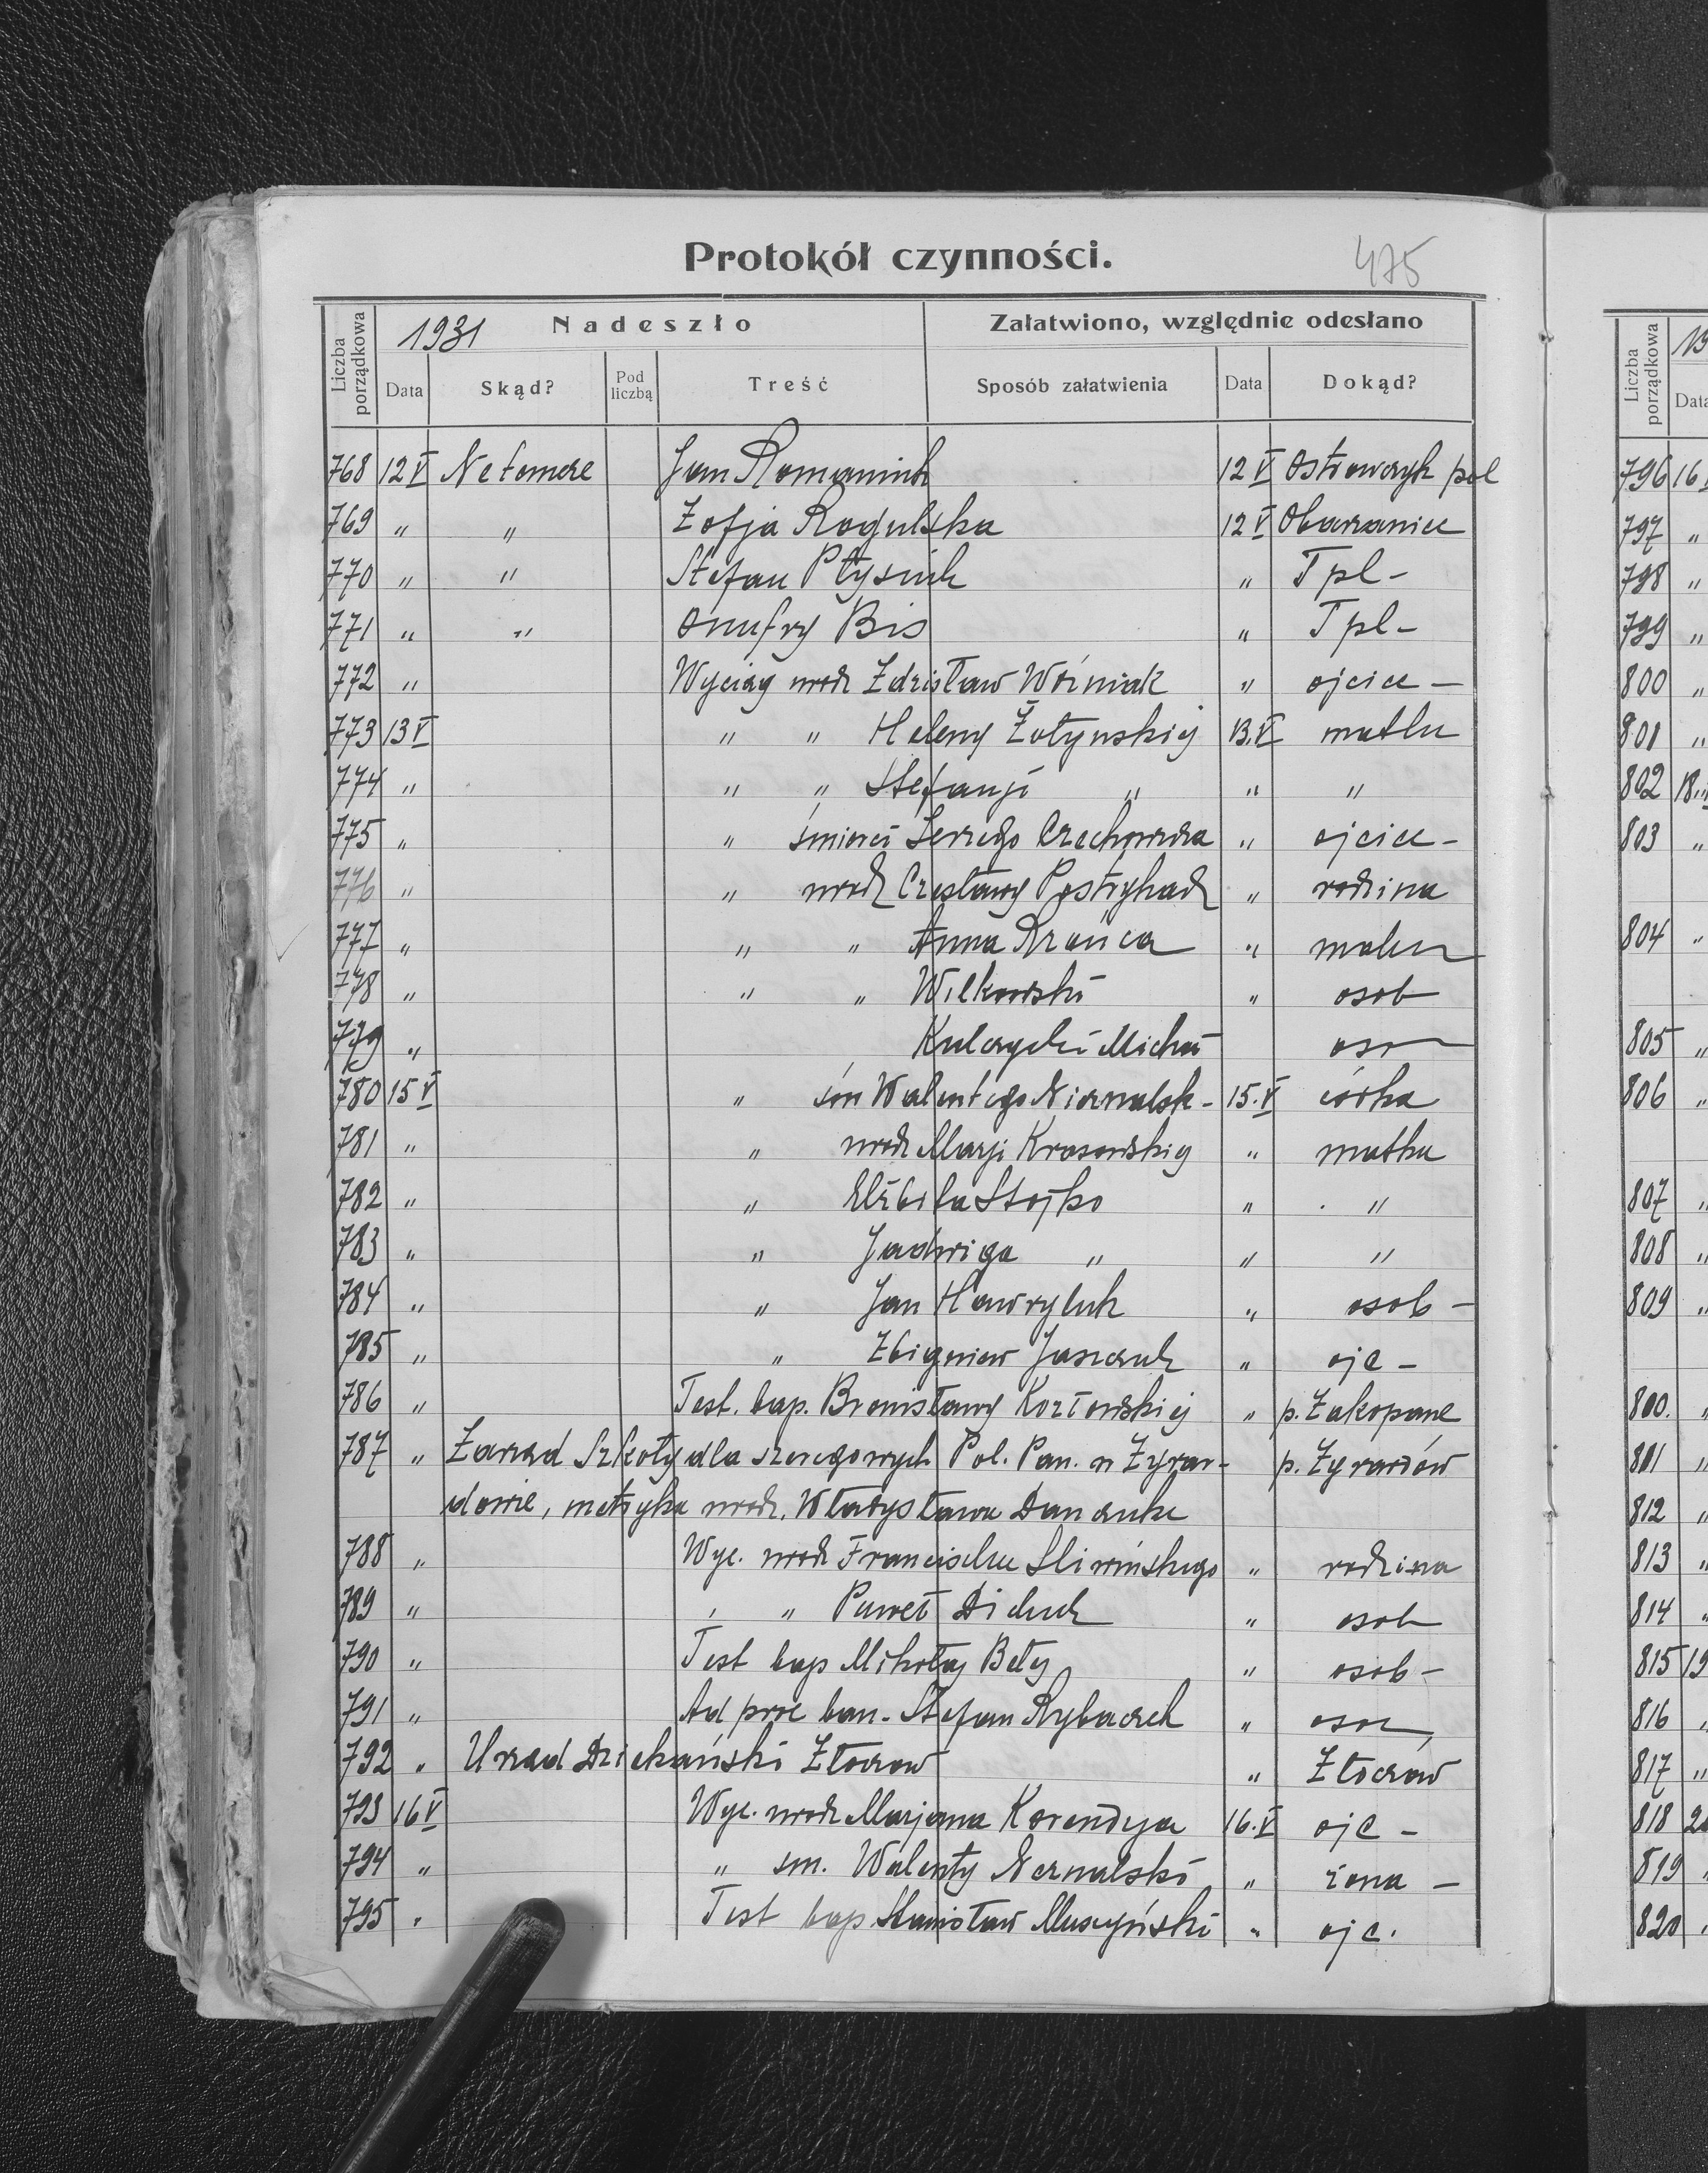 Protokół czynności.
475
Liczba porządkowa
1931 Nadeszło
Załatwiono, względnie odesłano
Data Skąd? Pod liczbą Treść Sposób załatwienia Data Dokąd?
768 12 V Ne temere Jan Romaniuk 12 V Ostrowczyk pol
769 " " Zofja Rogulska 12 V Obarzanice
770 " " Stefan Płysiuk " Tpl-
771 " " Onufry Bis " Tpl-
772 " Wyciąg urodz Zdzisław Woźniak " ojciec -
773 13 V " " Heleny Żołyńskiej 13.V matka
774 " " " Stefanji " " "
775 " " śmierci Jerzego Czechowicza " ojciec -
776 " " urodz Czesławy Postryhacz " rodzina
777 " " " Anna "
778 " " " Wilkowski " osob
779 " Kulczycki Michał
780 15 V " śm Walentego - 15.V córka
781 " " urodz Marji Krasowskiej " matka
782 " " Elżbieta Stojko " "
783 " " Jadwiga " " "
784 " " Jan Hawryluk " osob -
785 " " Zbigniew " ojc -
786 " Test. bap. Bronisławy Kozłowskiej " p. Zakopane
787 " Zarząd Szkoły dla szeregowych Pol. Pań. w Żyrar- p. Żyrardów
dowie, metryka urodz. Władysława
788 " Wyc. urodz Franciszka Śliwińskiego " rodzina
789 " " " Paweł " osob
790 " Test bap Mikołaj Bełej " osob -
791 " Stefan Rybaczek "
792 " Urząd Dziekański Złoczów " Złoczów
793 16 V Wyc. urodz Marjana 16.V ojc -
794 " " śm. Walenty " żona -
795 " Test bap Stanisław Muszyński " ojc.
Liczba porządkowa
19
Data
796 16
797 "
798 "
799 "
800 "
801 "
802 18.
803 "
804 "
805 "
806 "
807 "
808 "
809 "
800. "
801 "
812 "
813 "
814 "
815 19
816 "
817 "
818 2
819 "
820 "